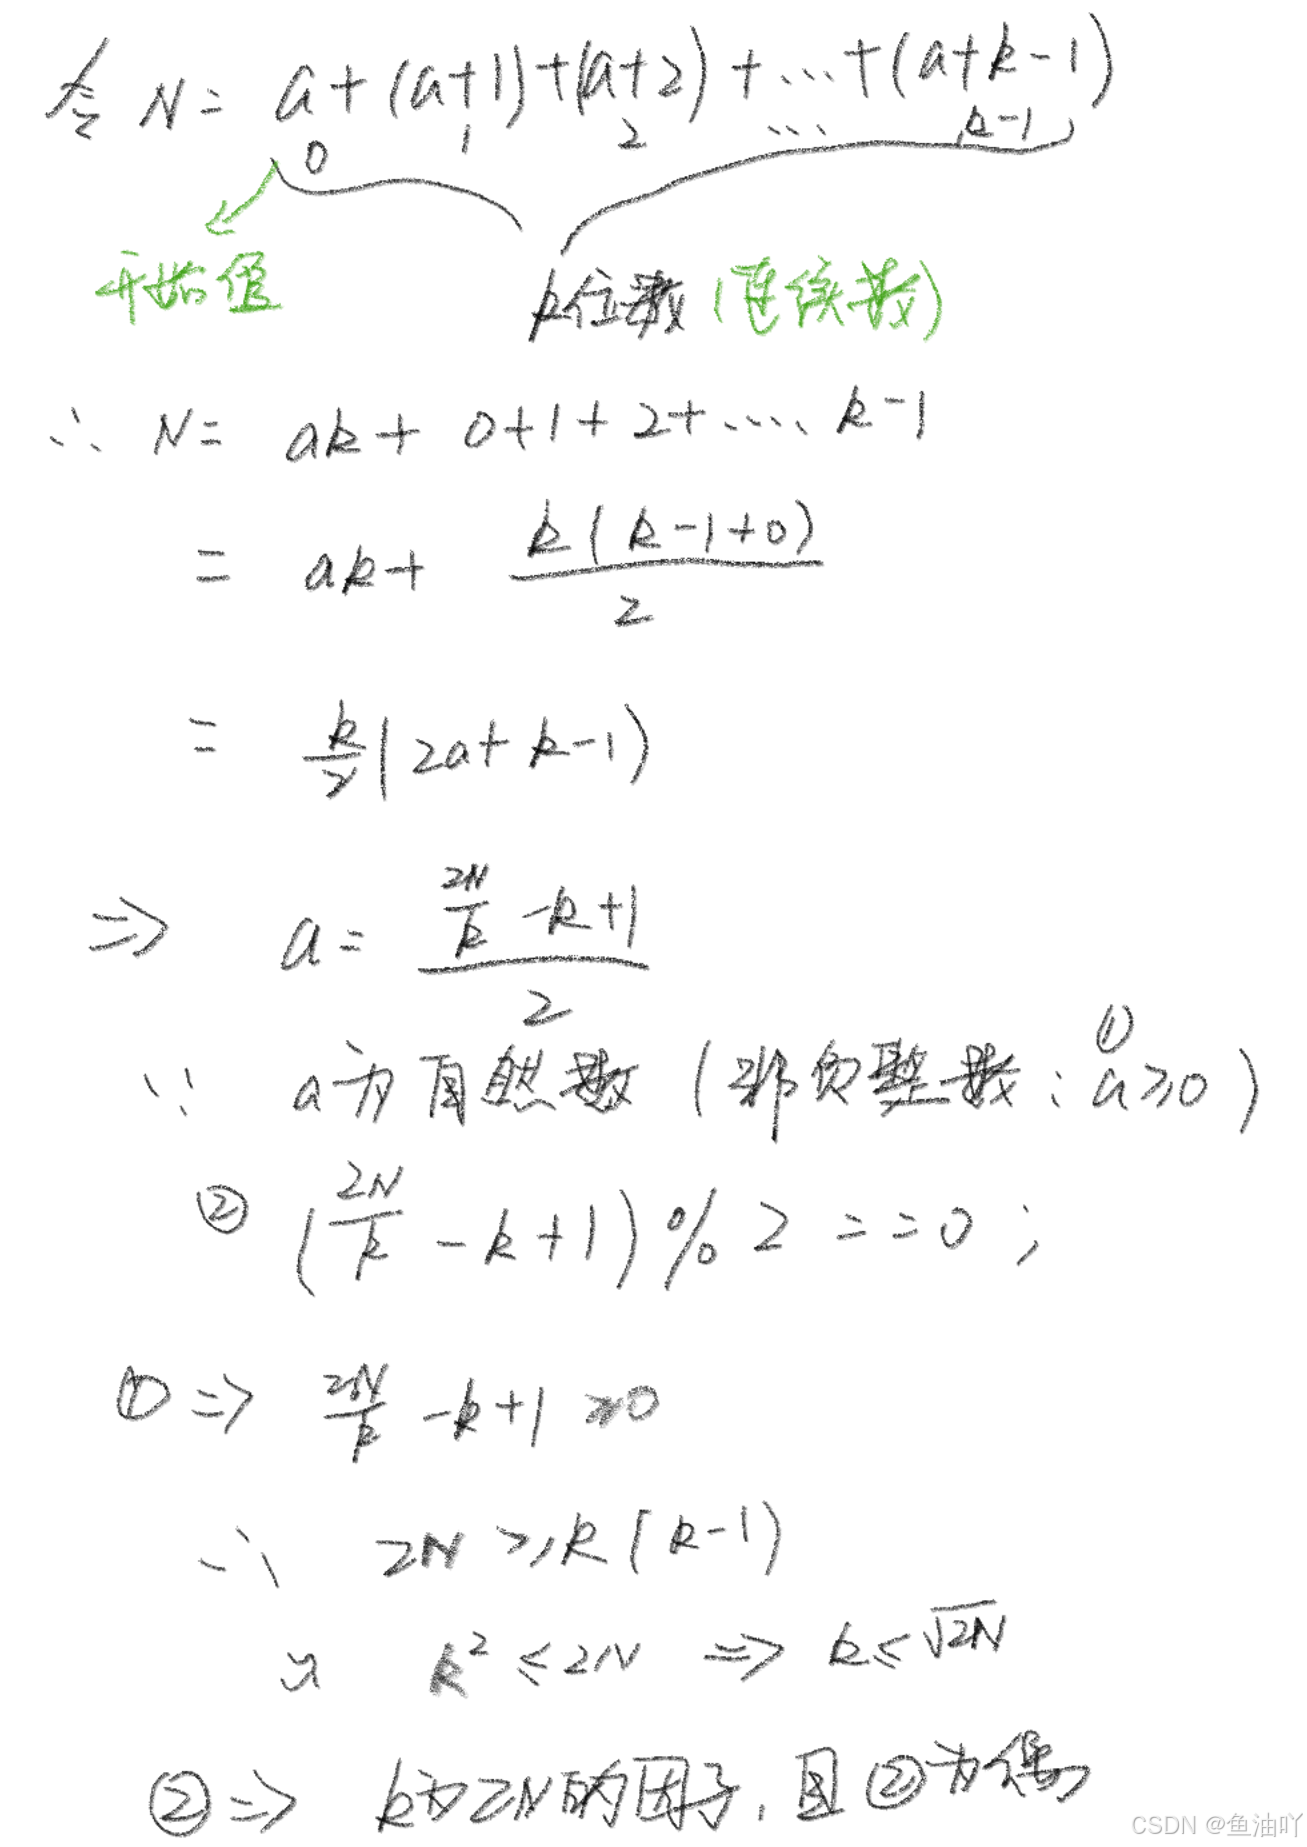 令 N = a + (a+1) + (a+2) + ... + (a+k-1)
0 1 2 ... k-1
开始值
k位数 (连续数)
∴ N = ak + 0+1+2+.... k-1
= ak + k(k-1+0)/2
= k/2(2a+k-1)
⇒ a = (2N/k -k+1)/2
∵ a为自然数 (非负整数: ① a≥0)
② (2N/k - k + 1) % 2 == 0 ;
① ⇒ 2N/k -k+1 ≥0
∴ 2N ≥ k(k-1)
k² ≤ 2N ⇒ k ≤ √2N
② ⇒ k为2N的因子, 且②为偶
CSDN @鱼油吖